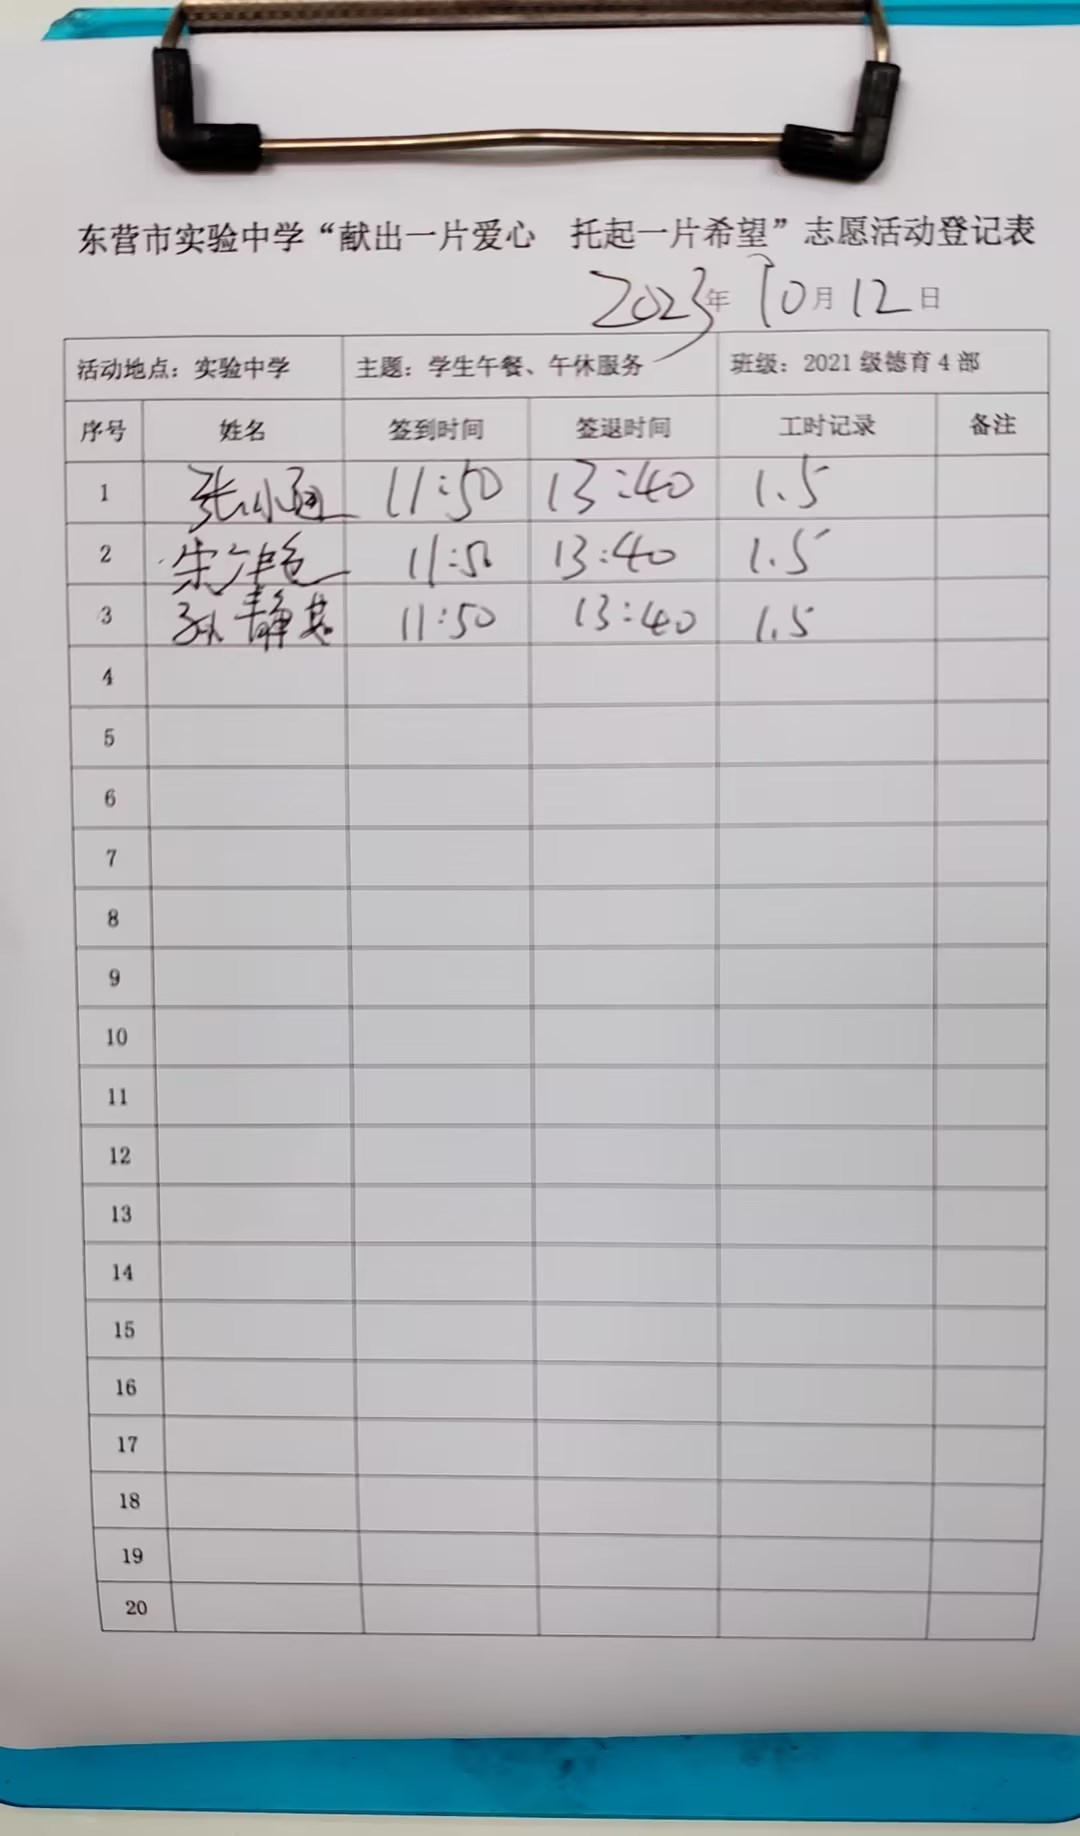 东营市实验中学“献出一片爱心 托起一片希望”志愿活动登记表
2023年10月12日
活动地点：实验中学 主题：学生午餐、午休服务 班级：2021级德育4部
序号 姓名 签到时间 签退时间 工时记录 备注
1 张小 11:50 13:40 1.5
2 宋 11:50 13:40 1.5
3 孙静 11:50 13:40 1.5
4
5
6
7
8
9
10
11
12
13
14
15
16
17
18
19
20